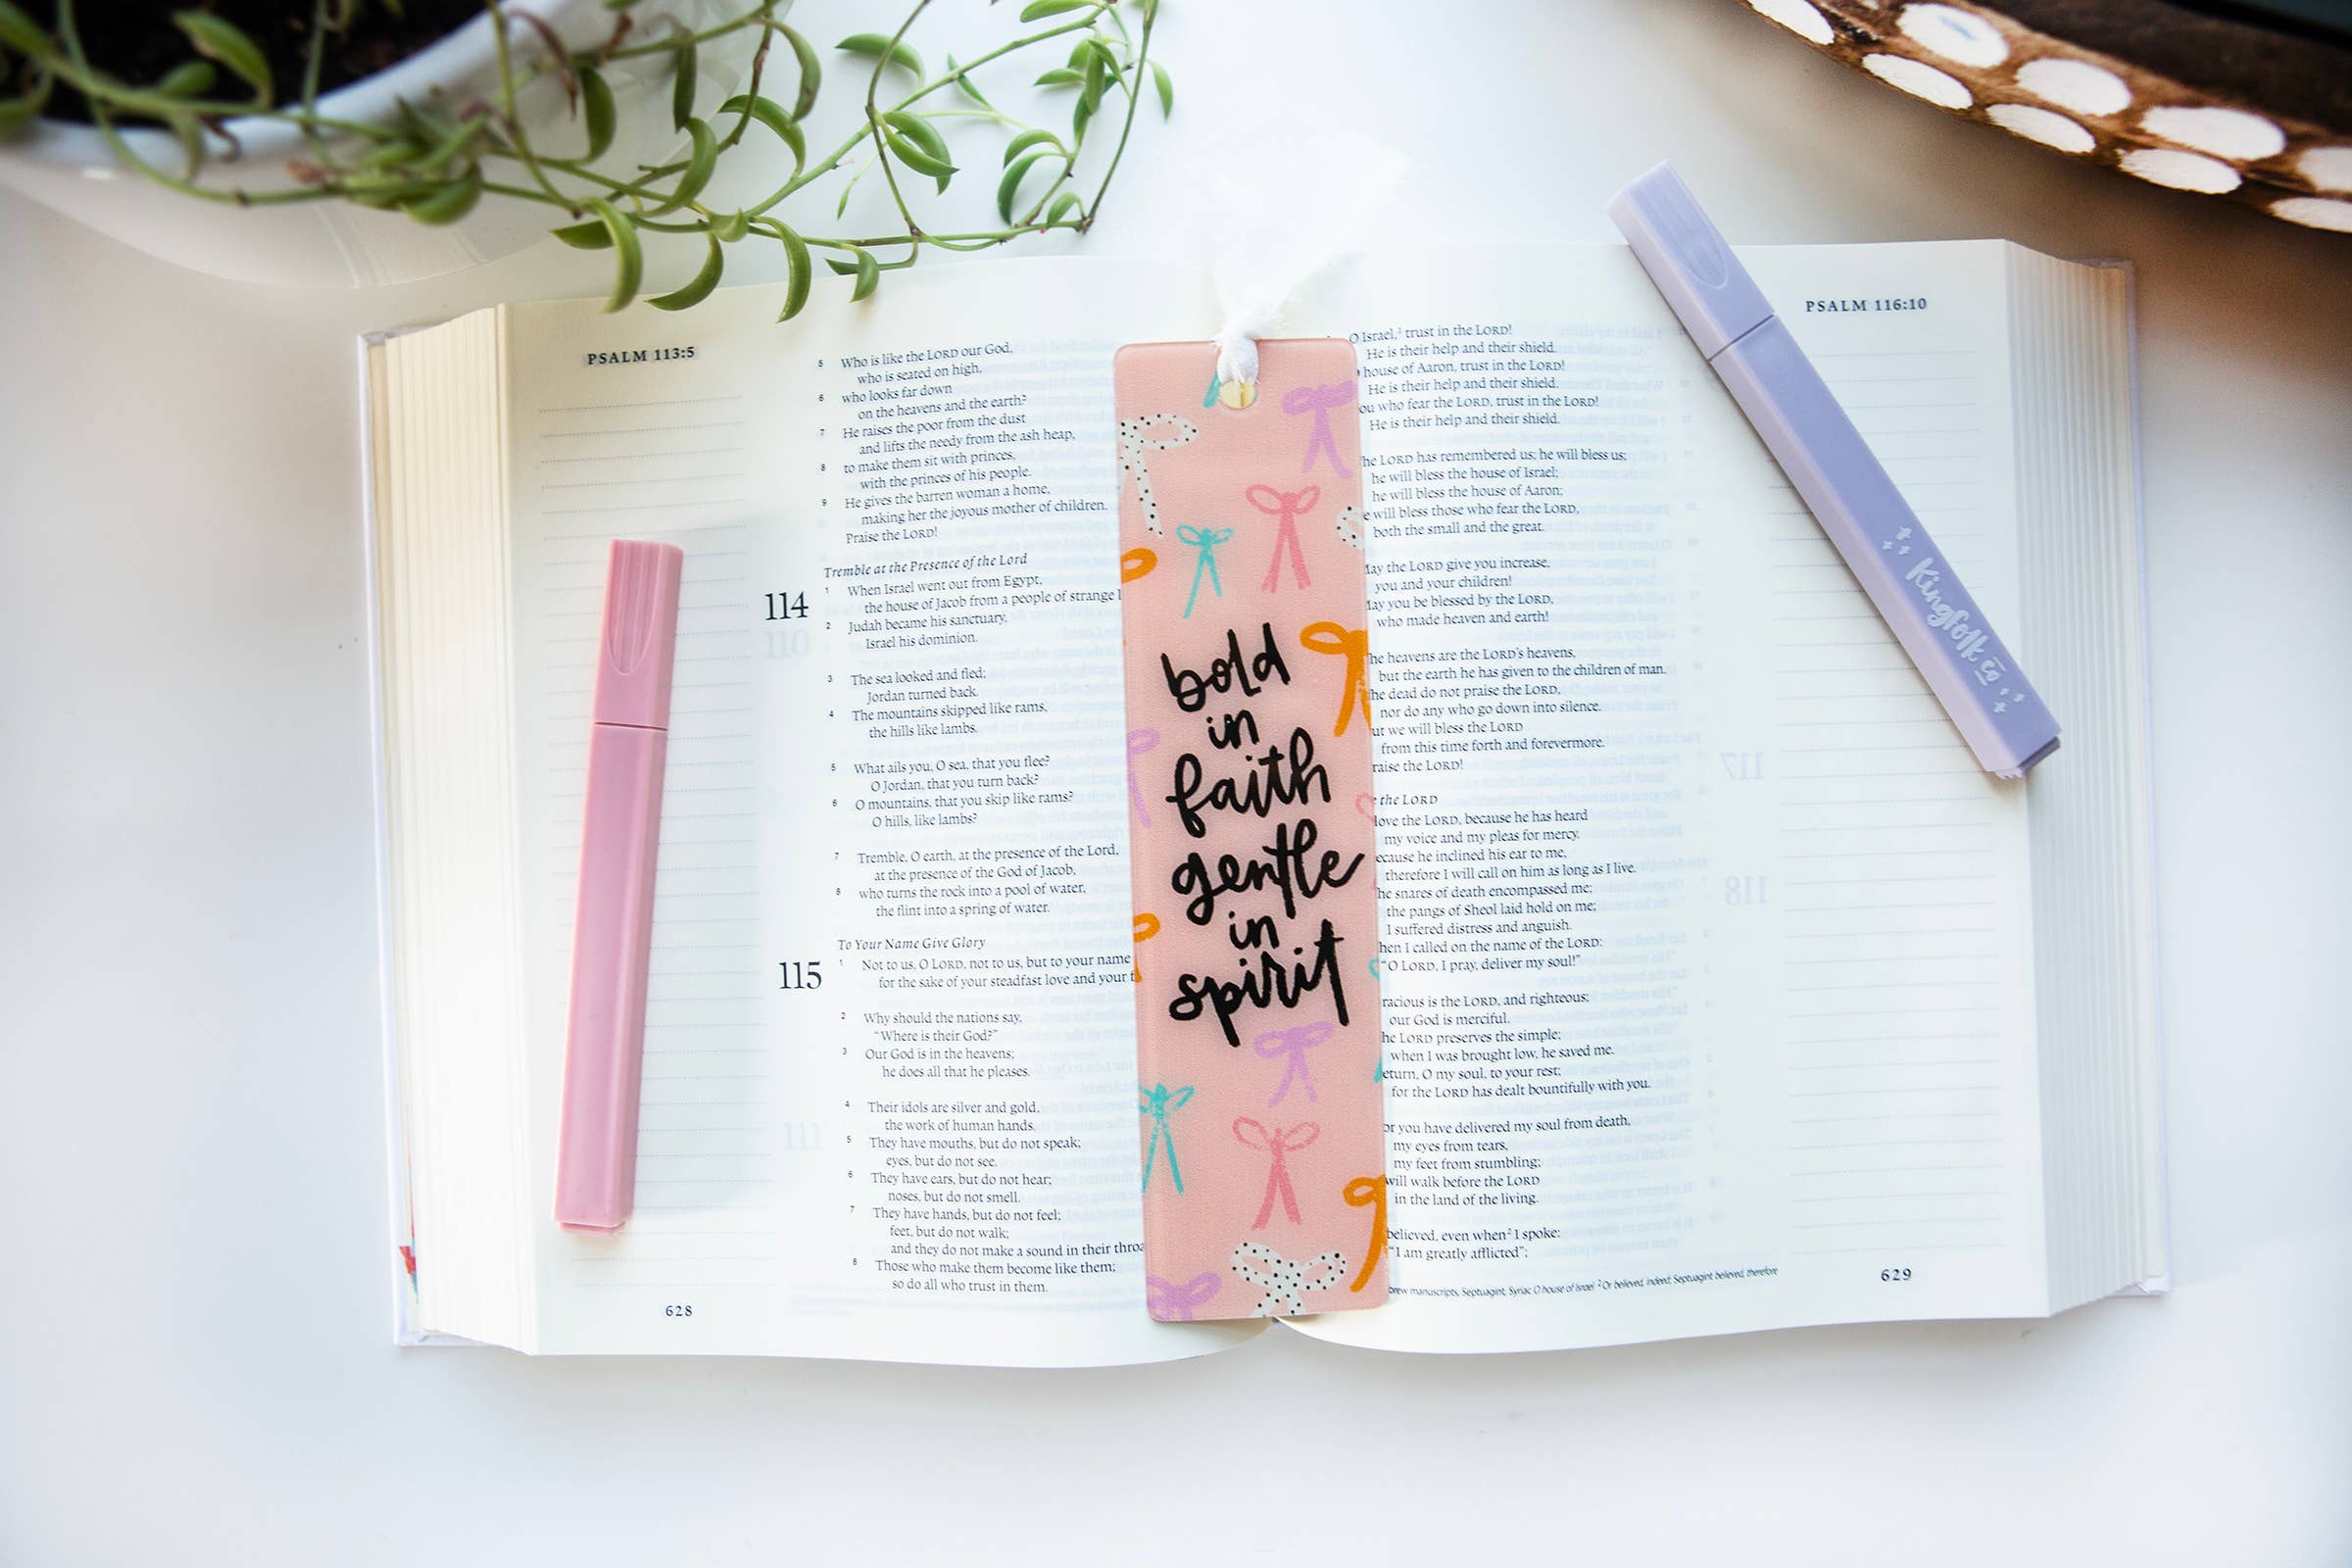 PSALM 113:5
5 Who is like the LORD our God,
who is seated on high,
6 who looks far down
on the heavens and the earth?
7 He raises the poor from the dust
and lifts the needy from the ash heap,
8 to make them sit with princes,
with the princes of his people.
9 He gives the barren woman a home,
making her the joyous mother of children.
Praise the LORD!
Tremble at the Presence of the Lord
114 1 When Israel went out from Egypt,
the house of Jacob from a people of strange
2 Judah became his sanctuary,
Israel his dominion.
3 The sea looked and fled;
Jordan turned back.
4 The mountains skipped like rams,
the hills like lambs.
5 What ails you, O sea, that you flee?
O Jordan, that you turn back?
6 O mountains, that you skip like rams?
O hills, like lambs?
7 Tremble, O earth, at the presence of the Lord,
at the presence of the God of Jacob,
8 who turns the rock into a pool of water,
the flint into a spring of water.
To Your Name Give Glory
115 1 Not to us, O LORD, not to us, but to your name
for the sake of your steadfast love and your
2 Why should the nations say,
“Where is their God?”
3 Our God is in the heavens;
he does all that he pleases.
4 Their idols are silver and gold,
the work of human hands.
5 They have mouths, but do not speak;
eyes, but do not see.
6 They have ears, but do not hear;
noses, but do not smell.
7 They have hands, but do not feel;
feet, but do not walk;
and they do not make a sound in their
8 Those who make them become like them;
so do all who trust in them.
628
bold
in
faith
gentle
in
spirit
PSALM 116:10
O Israel,1 trust in the LORD!
He is their help and their shield.
house of Aaron, trust in the LORD!
He is their help and their shield.
ou who fear the LORD, trust in the LORD!
He is their help and their shield.
he LORD has remembered us; he will bless us;
he will bless the house of Israel;
he will bless the house of Aaron;
e will bless those who fear the LORD,
both the small and the great.
ay the LORD give you increase,
you and your children!
ay you be blessed by the LORD,
who made heaven and earth!
he heavens are the LORD's heavens,
but the earth he has given to the children of man.
he dead do not praise the LORD,
nor do any who go down into silence.
ut we will bless the LORD
from this time forth and forevermore.
raise the LORD!
the LORD
love the LORD, because he has heard
my voice and my pleas for mercy.
ecause he inclined his ear to me,
therefore I will call on him as long as I live.
he snares of death encompassed me;
the pangs of Sheol laid hold on me;
I suffered distress and anguish.
hen I called on the name of the LORD:
“O LORD, I pray, deliver my soul!”
racious is the LORD, and righteous;
our God is merciful.
he LORD preserves the simple;
when I was brought low, he saved me.
eturn, O my soul, to your rest;
for the LORD has dealt bountifully with you.
or you have delivered my soul from death,
my eyes from tears,
my feet from stumbling;
will walk before the LORD
in the land of the living.
believed, even when2 I spoke:
“I am greatly afflicted”;
brew manuscripts, Septuagint, Syriac O house of Israel 2 Or believed, indeed; Septuagint believed, therefore
629
Kingfolk co